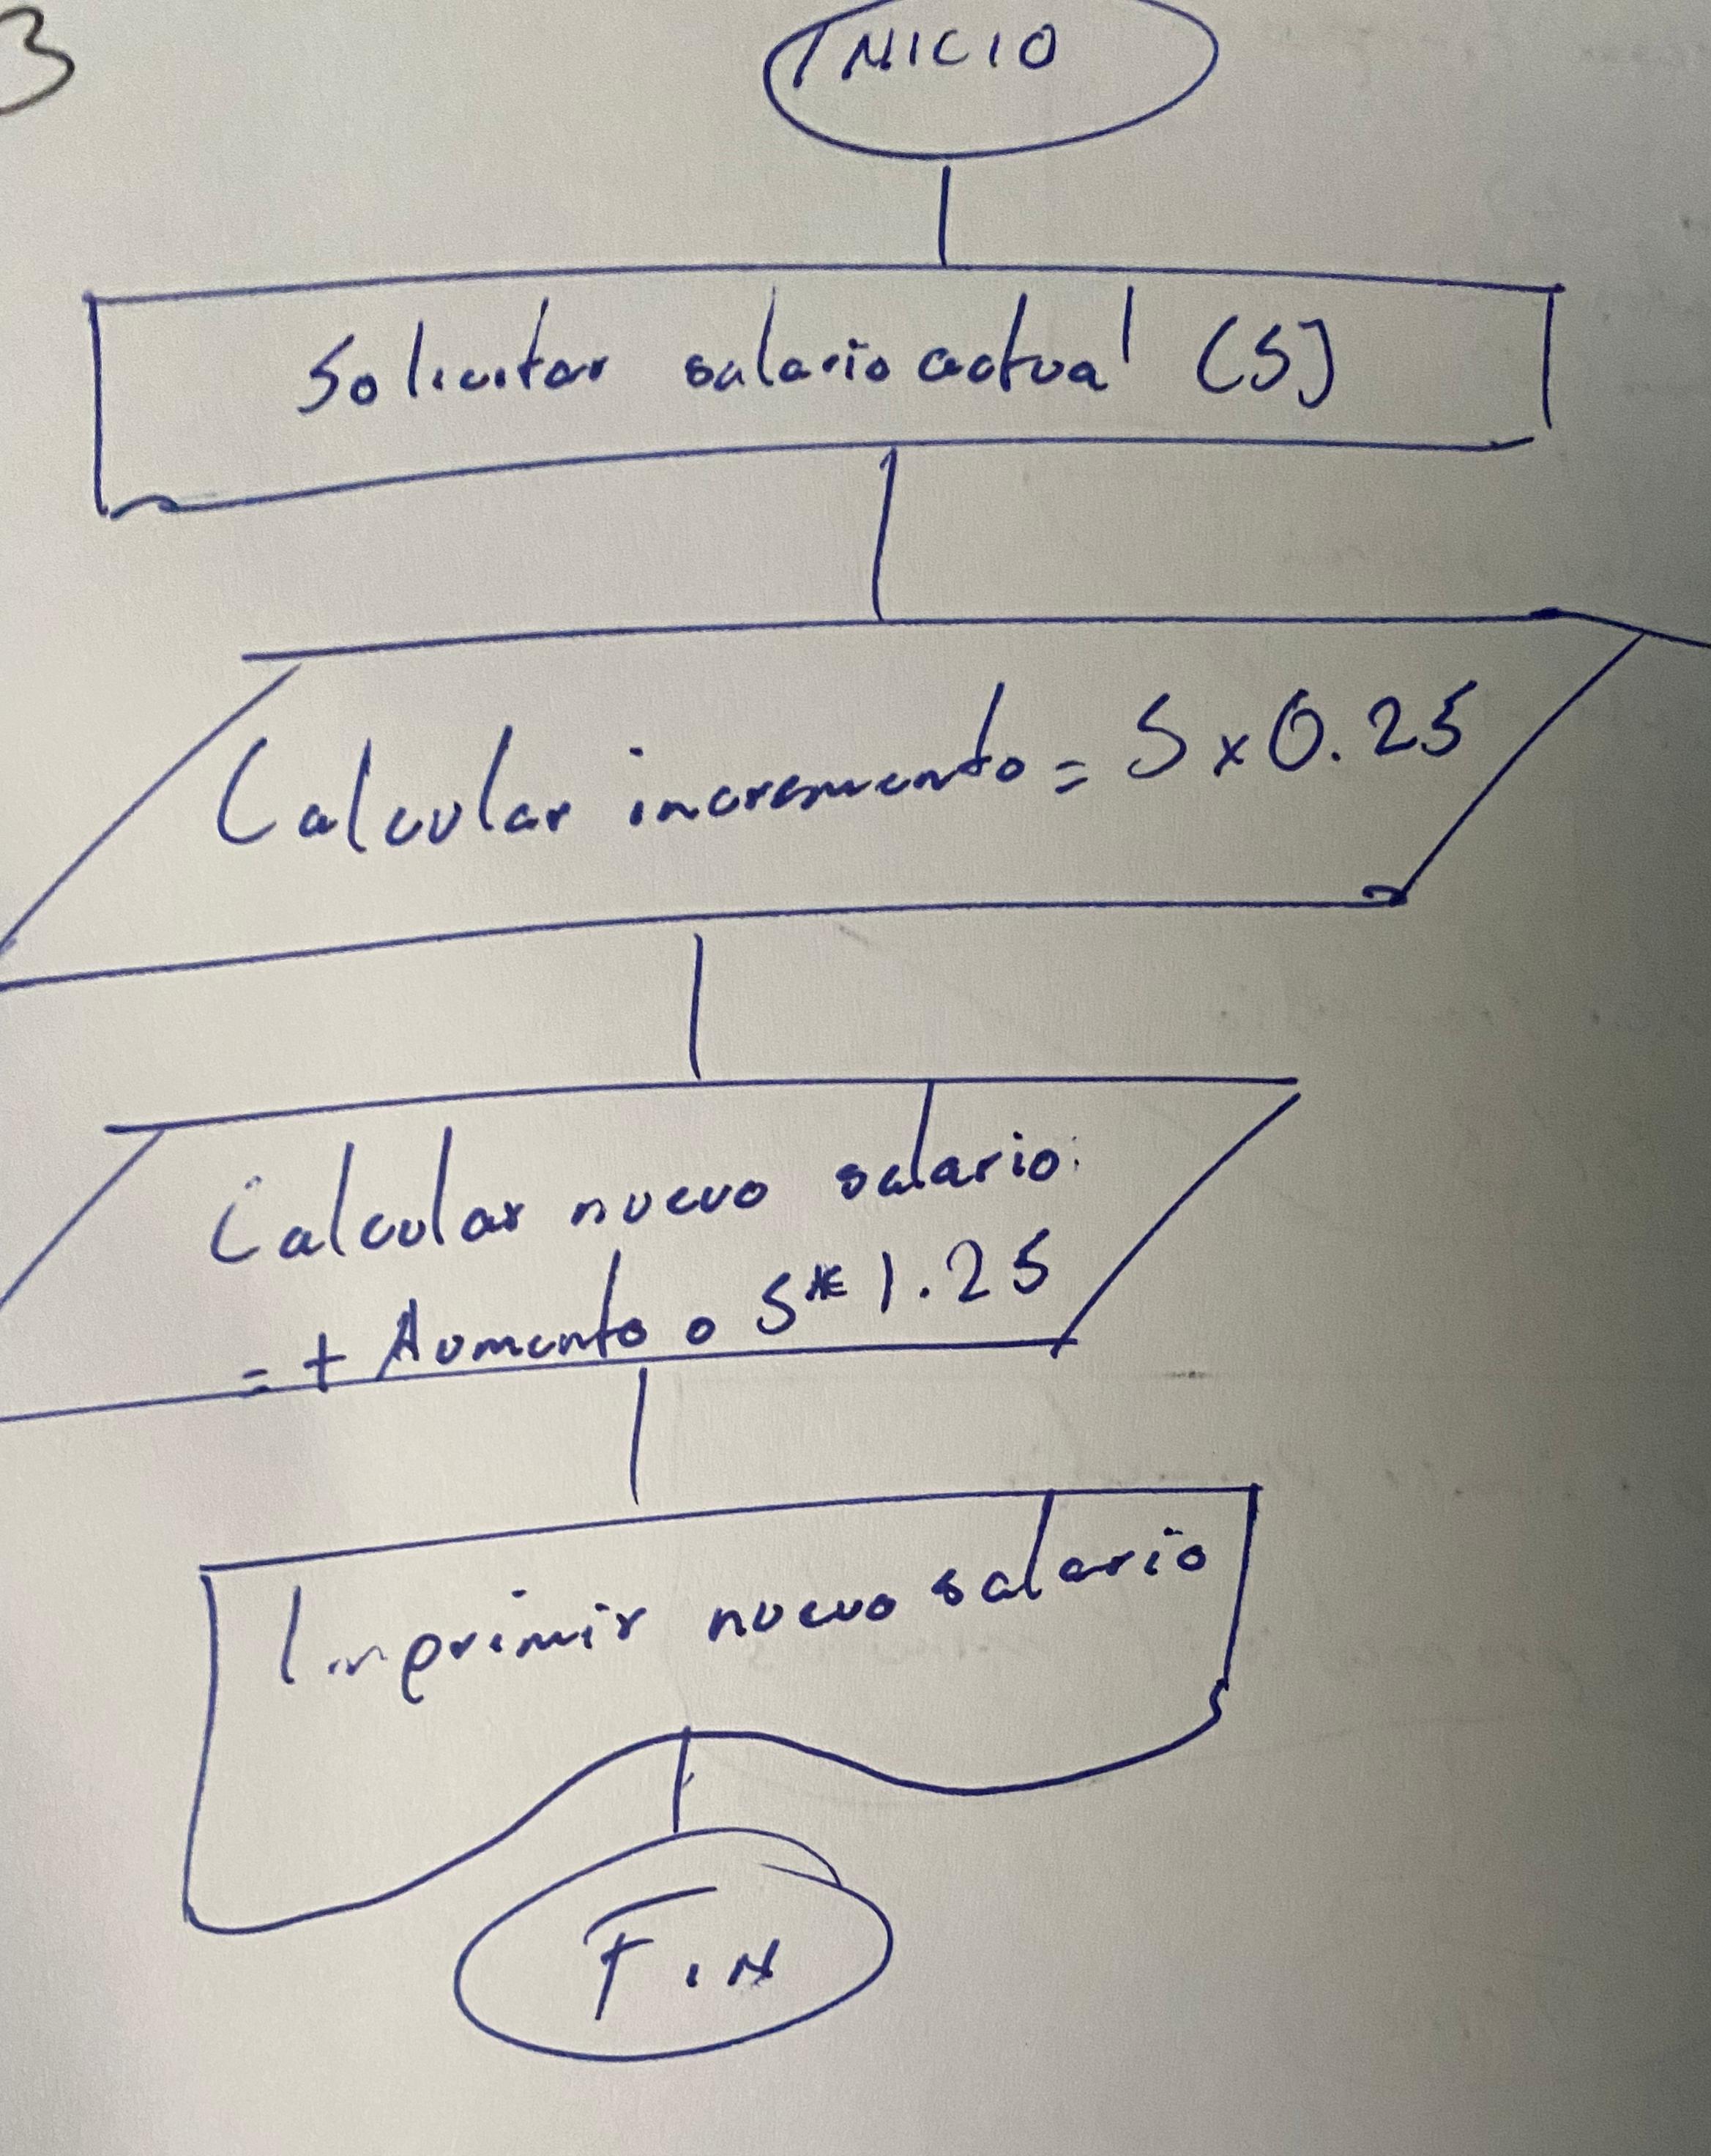 3
INICIO
Solicitar salario actual (S)
Calcular incremento = S x 0.25
Calcular nuevo salario:
= + Aumento o S * 1.25
Imprimir nuevo salario
Fin